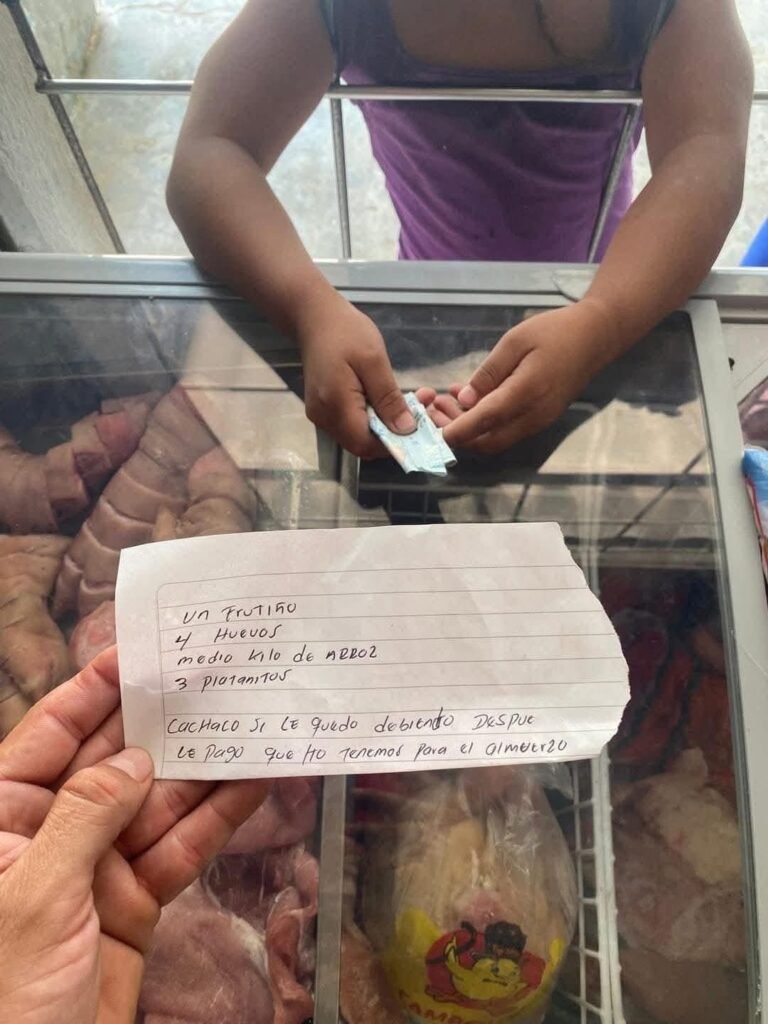 un Frutiño
4 Huevos
medio kilo de ARROZ
3 platanitos
CACHACO Si LE quedo debiento DESPUE
LE pago que no tenemos para el almuerzo